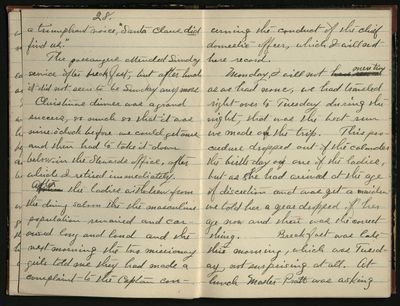 28.
a triumphant voice, "Santa Claus did
find us."
The passengers attended Sunday
service after breakfast, but after lunch
it did not seem to be Sunday any more
Christmas dinner was a grand
success, so much so that it was
nine o'clock before we could get one
and then had to take it down
below in the Stewards office, after
which I retired immediately.
After the ladies withdrew from
the dining saloon the the masculine
population remained and car
oused long and loud and the
next morning the two missionary
girls told me they had made a
complaint to the Captain con-
cerning the conduct of the chief
domestic officer, which I will not
here record.
Monday, I will not
as we had none, we had traveled
right over to Tuesday during the
night, that was the best run
we made on the trip. This pro-
cedure dropped out of the calendar
the birthday of one of the ladies,
but as she had arrived at the age
of discretion and was yet a maiden
we told her a year dropped of her
age now and then was the correct
thing. Breakfast was late
this morning, which was Tuesd-
ay, not surprising at all. At
lunch Master Pratt was asking